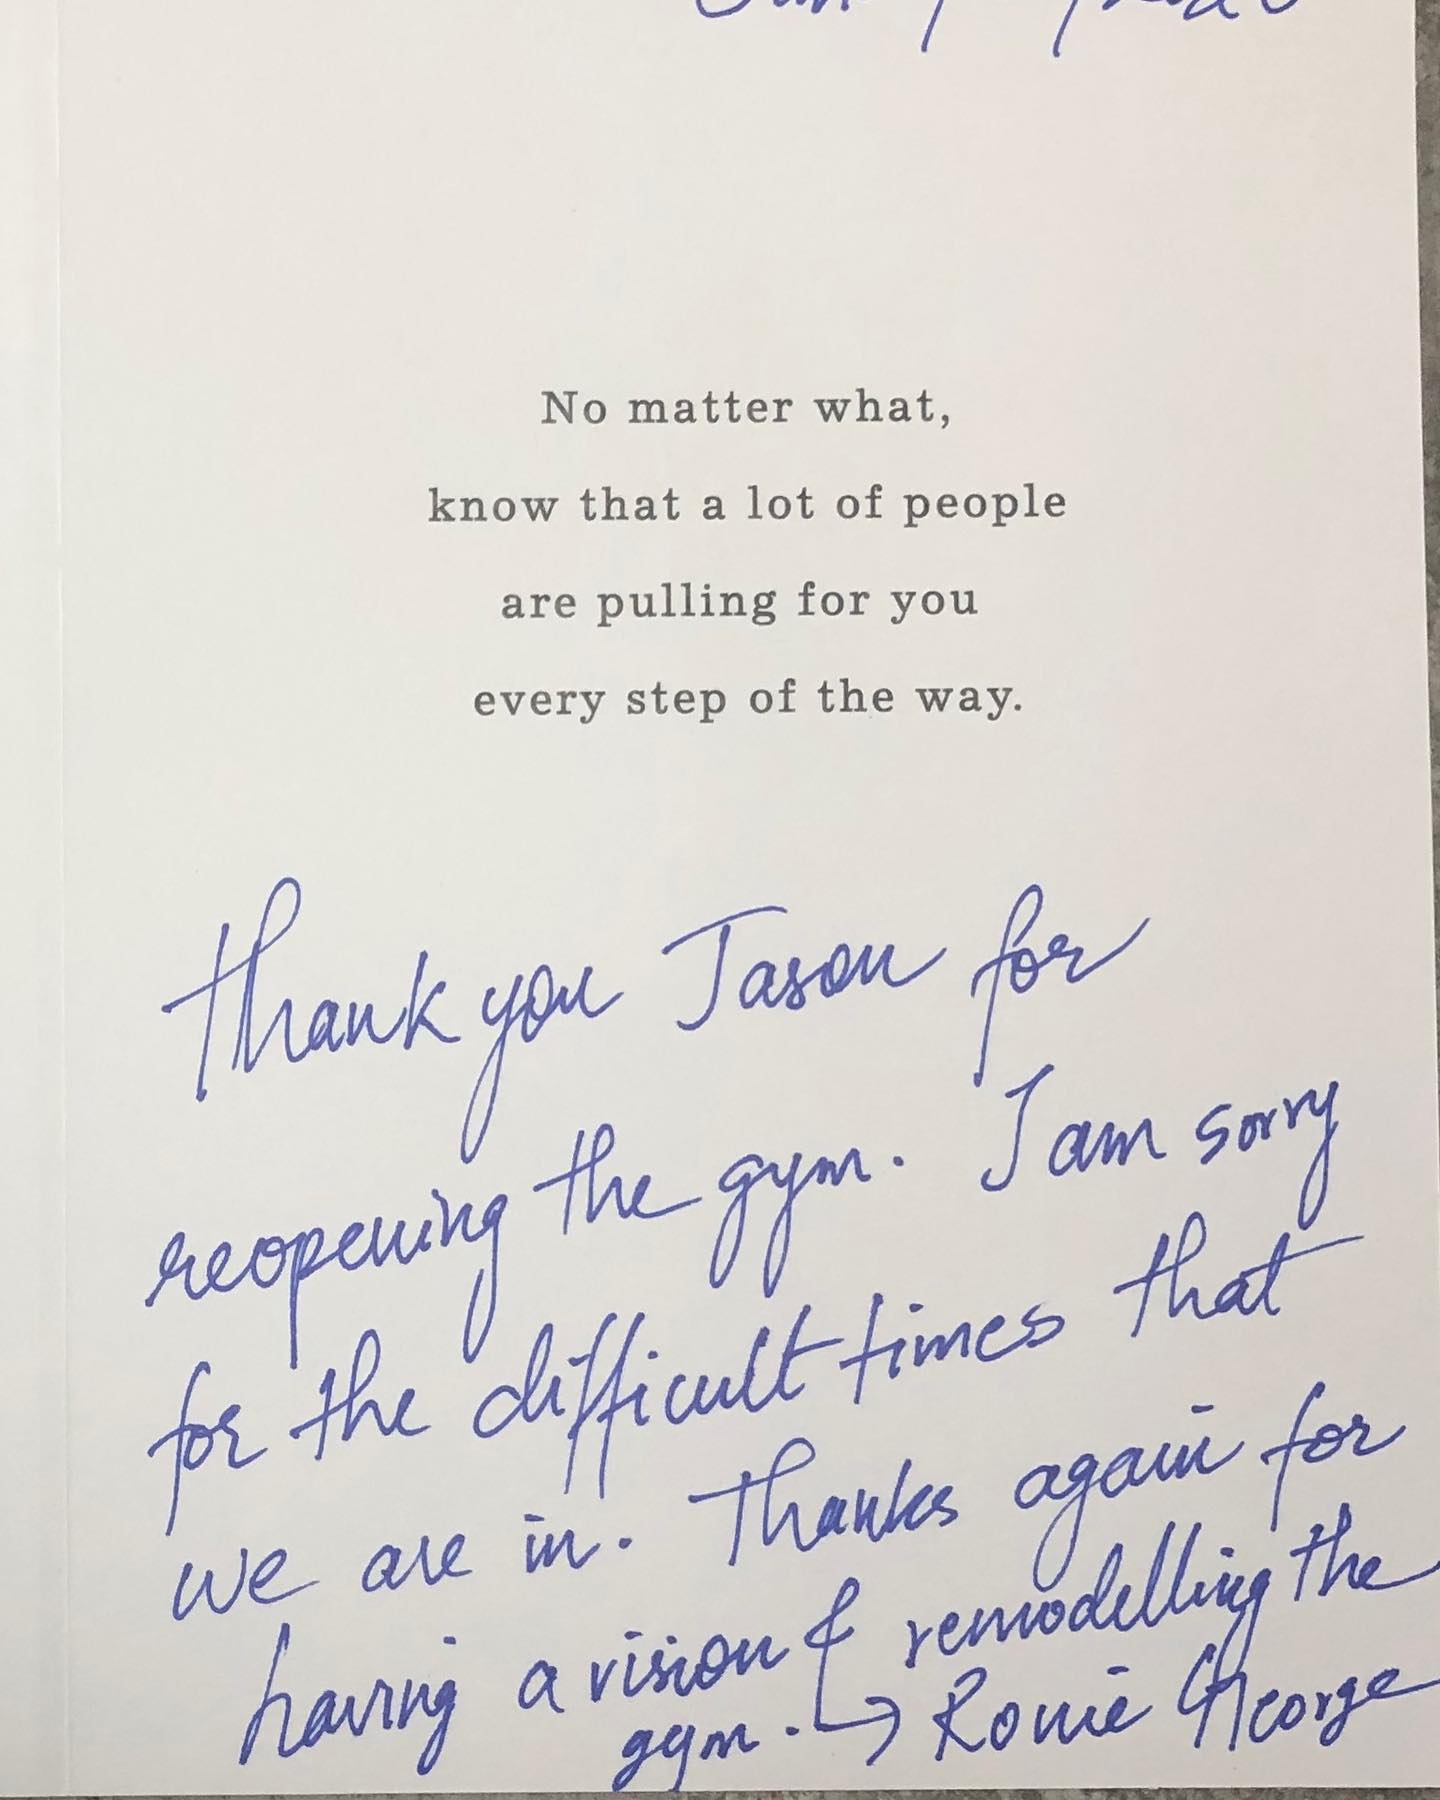 No matter what,
know that a lot of people
are pulling for you
every step of the way.
Thank you Jason for
reopening the gym. I am sorry
for the difficult times that
we are in. Thanks again for
having a vision & remodelling the
gym. → Ronie George